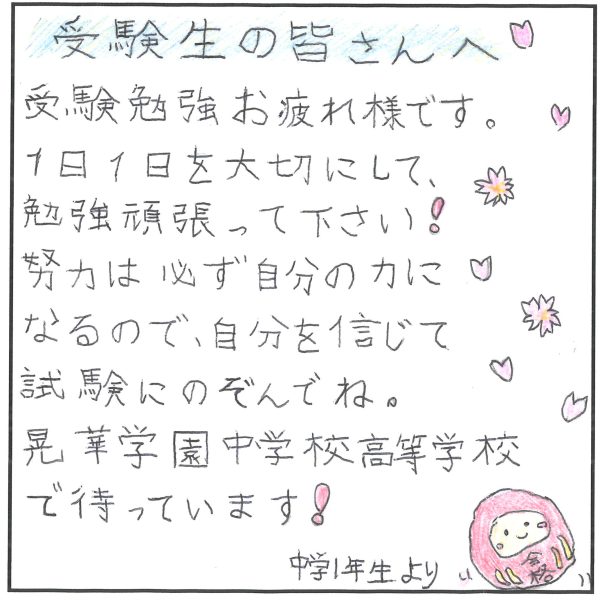 受験生の皆さんへ
受験勉強お疲れ様です。
1日1日を大切にして、
勉強頑張って下さい!
努力は必ず自分の力に
なるので、自分を信じて
試験にのぞんでね。
晃華学園中学校高等学校
で待っています!
中学1年生より
合格